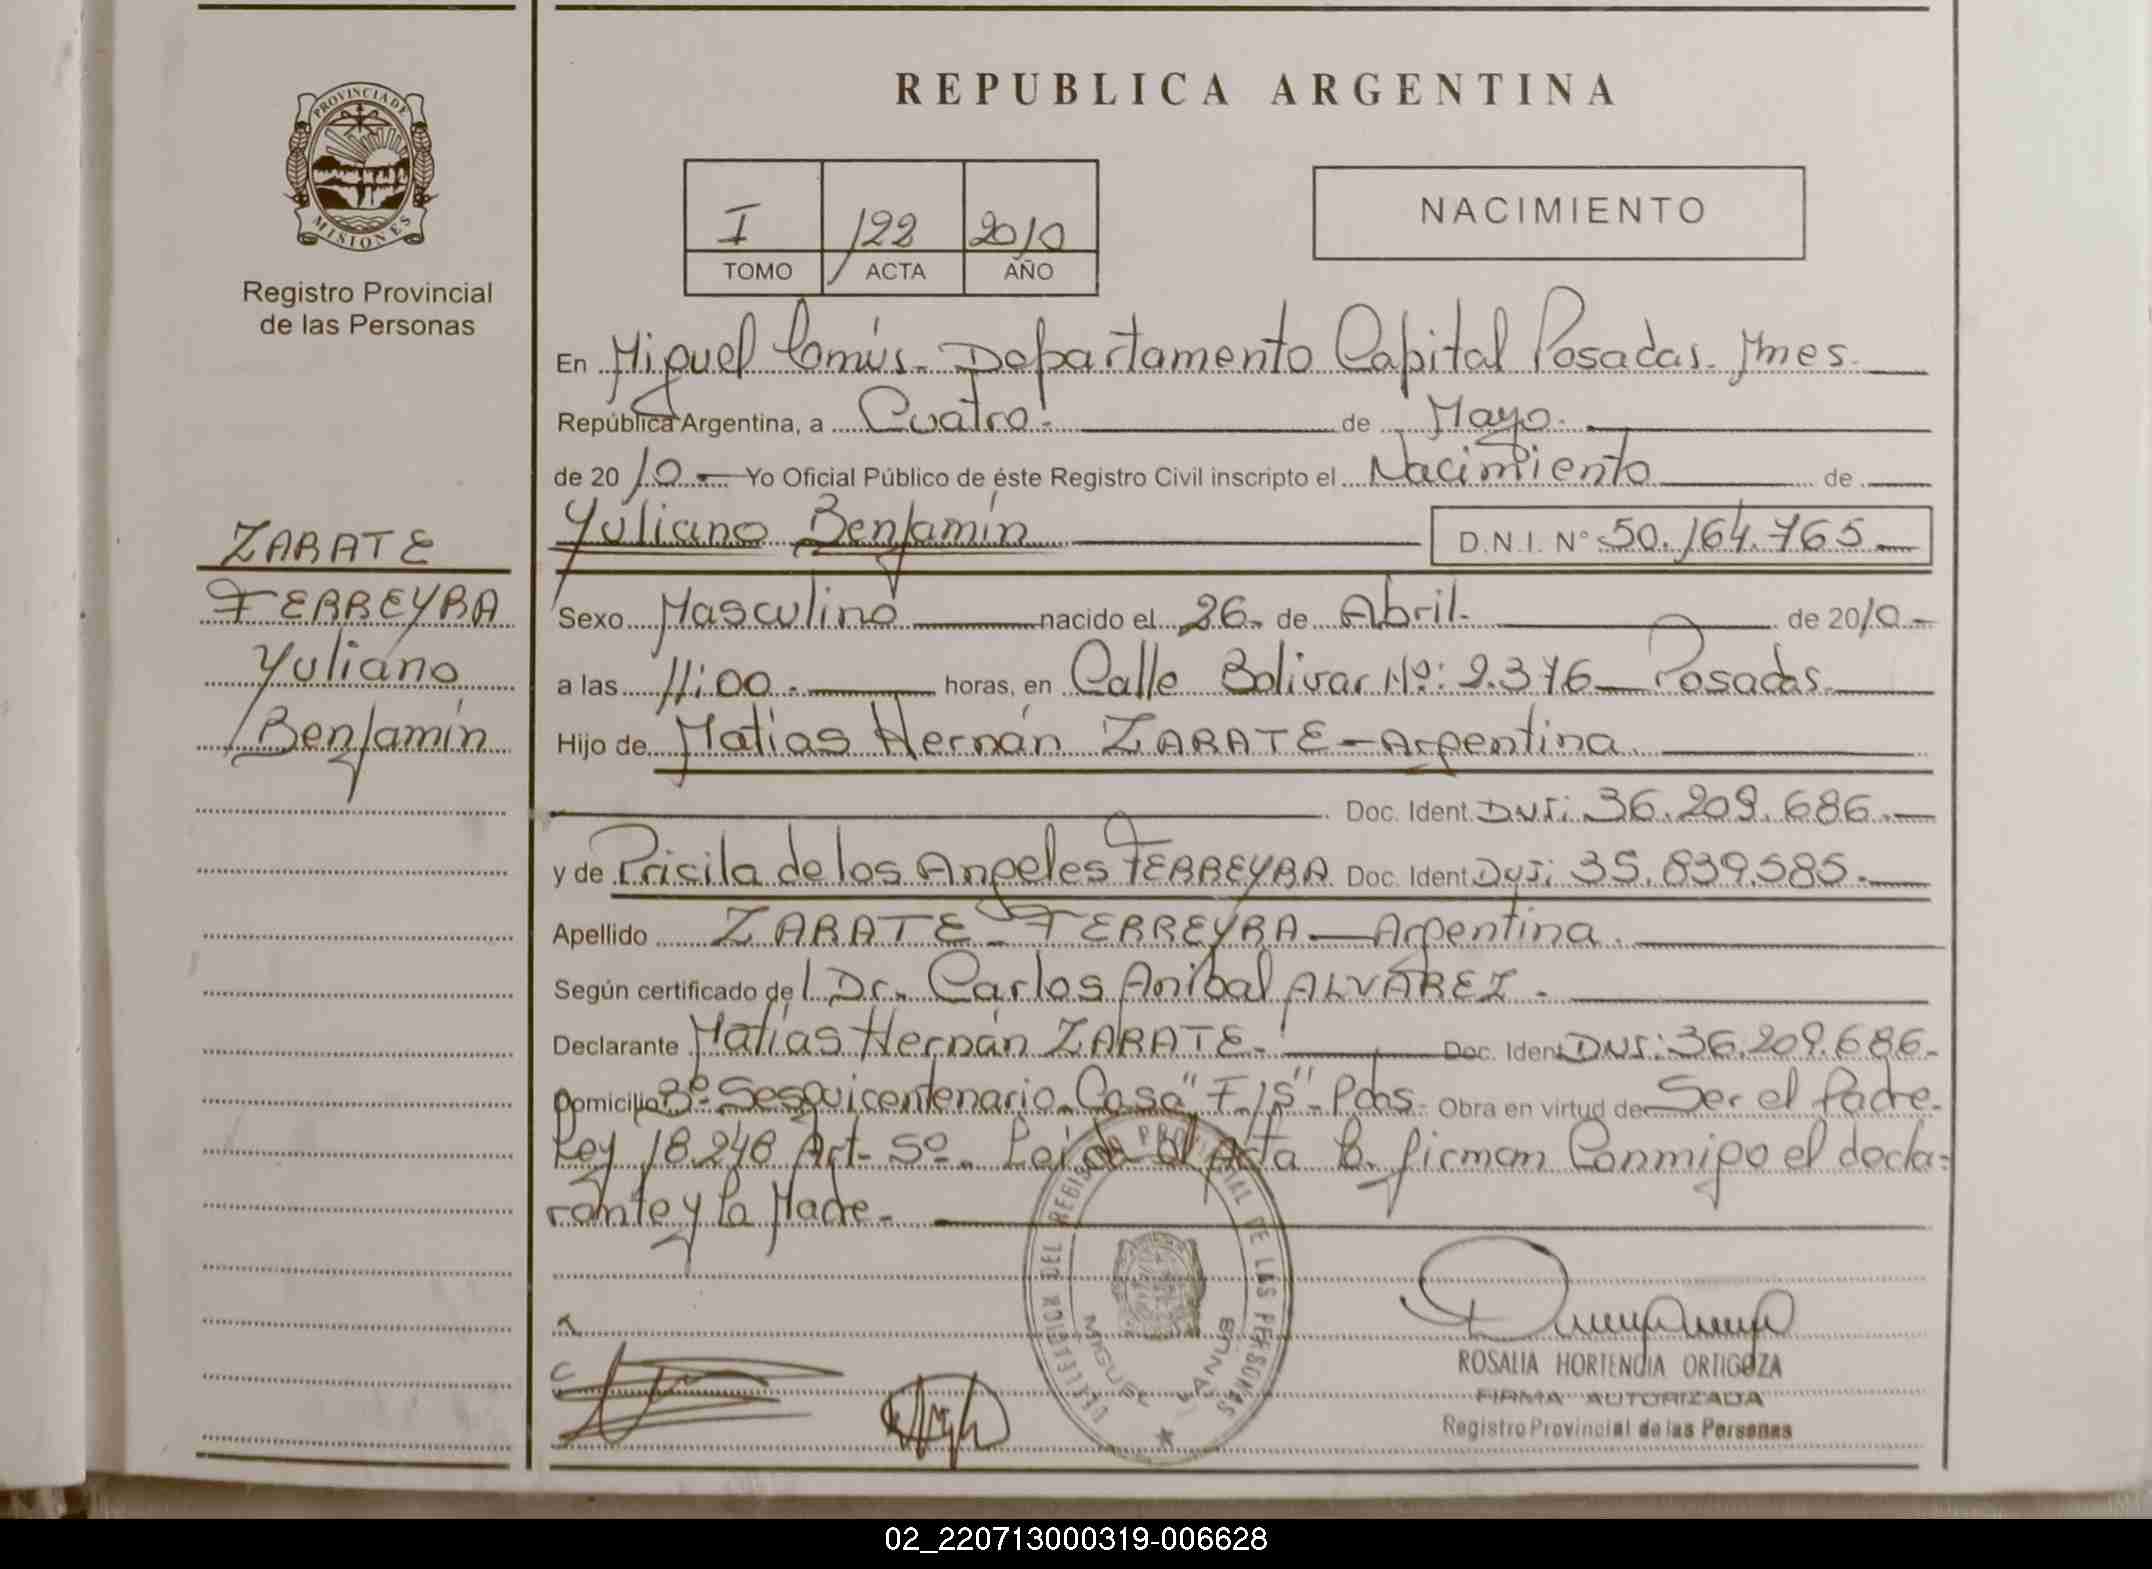 REPUBLICA ARGENTINA
PROVINCIA DE MISIONES
Registro Provincial
de las Personas
I 122 2010
TOMO ACTA AÑO
NACIMIENTO
En Miguel Lanús. Departamento Capital Posadas. Mnes.
República Argentina, a Cuatro. de Mayo.
de 2010.- Yo Oficial Público de éste Registro Civil inscripto el Nacimiento de
Yuliano Benjamín D.N.I. Nº 50.164.765.-
ZARATE
FERREYRA
Yuliano
Benjamín
Sexo Masculino nacido el 26. de Abril. de 2010.-
a las 11:00.- horas, en Calle Bolivar Nº: 2.376 - Posadas.
Hijo de Matías Hernán ZARATE - Argentina.
Doc. Ident. DNI: 36.209.686.-
y de Pricila de los Angeles FERREYRA Doc. Ident. DNI: 35.839.585.-
Apellido ZARATE - FERREYRA - Argentina.
Según certificado del Dr. Carlos Anibal ALVAREZ.
Declarante Matías Hernán ZARATE.- Doc. Ident. DNI: 36.209.686.-
Domicilio Bº. Sesquicentenario. Casa "F/S". Pdas. Obra en virtud de Ser el Padre.
Ley 18.248 Art. 5º. Leida el Acta la firman Conmigo el decla-
rante y la Madre.-
DELEGACION DEL REGISTRO PROVINCIAL DE LAS PERSONAS
MIGUEL LANUS
ROSALIA HORTENCIA ORTIGOZA
FIRMA AUTORIZADA
Registro Provincial de las Personas
02_220713000319-006628